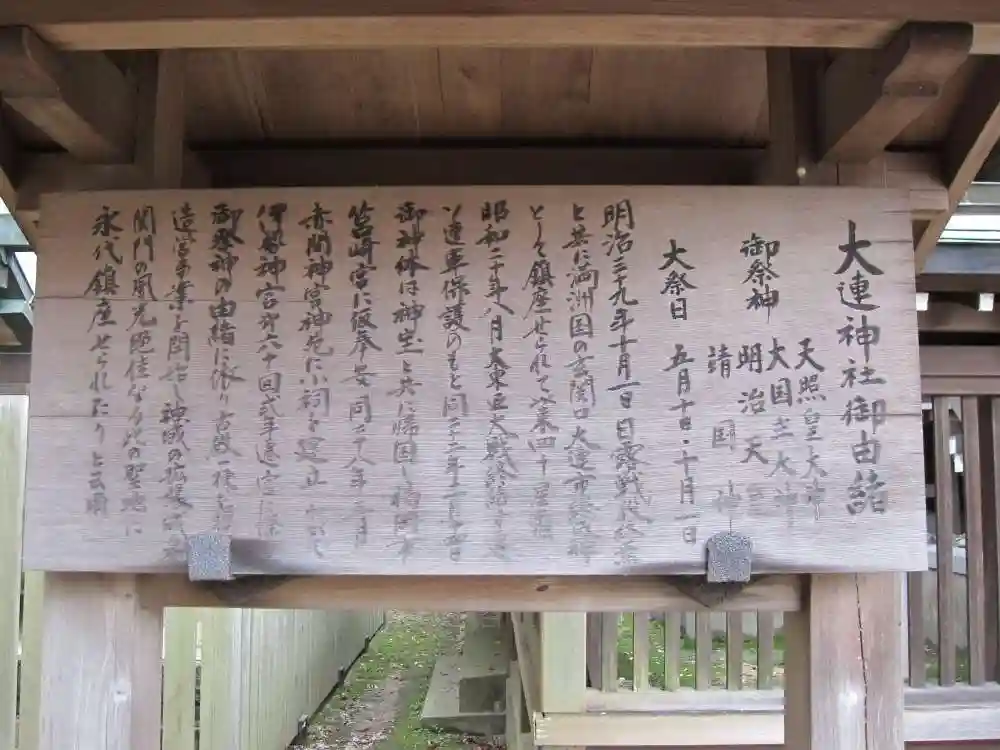 大連神社御由緒
御祭神
天照皇大神
大国主大神
明治天皇
靖国神
大祭日 五月十日・十月一日
明治三十九年十月一日日露戦役終焉
と共に満洲国の玄関口大連市
として鎮座せられて以来四十星霜
昭和二十年八月大東亜大戦終結
ソ連軍保護のもと同二十二年
御神体は神宝と共に帰国し福岡市
筥崎宮に仮奉安同
赤間神宮神苑に小祠を建立
伊勢神宮第六十回式年遷宮に際し
御祭神の由緒に依り古殿一棟
造営事業を開始し
関門の風光絶佳なる此の聖地に
永代鎮座せられたりと云爾